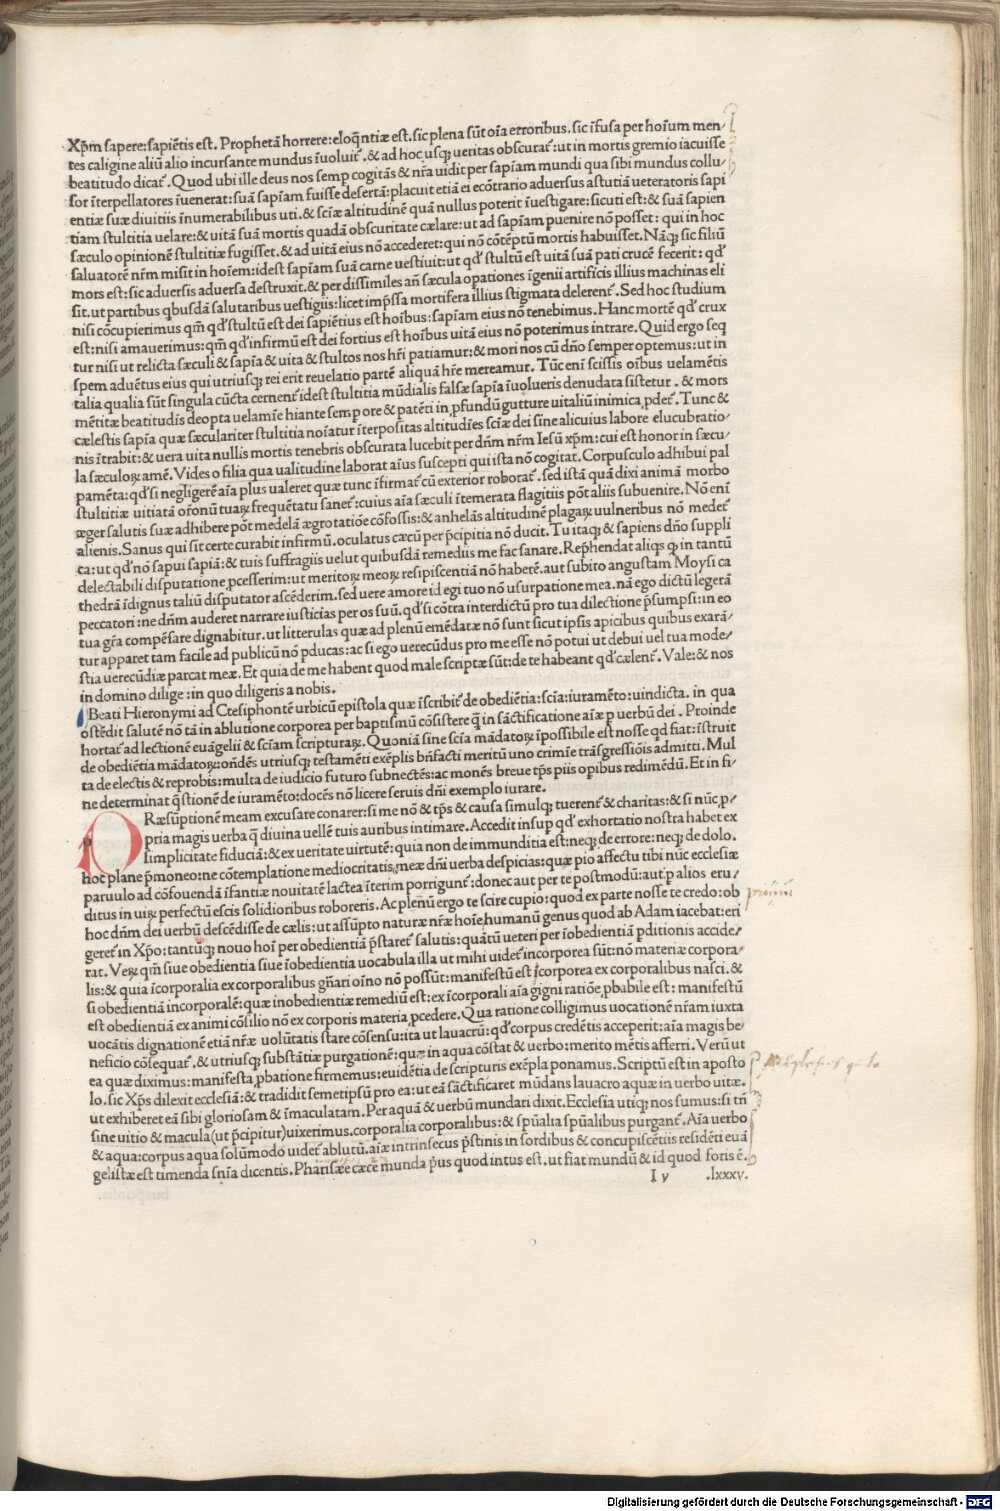 Xp̄m sapere:sapiētis est. Prophetā horrere:eloq̄ntiæ est.sic plena sūt oīa erroribus.sic īfusa per hoīum men/
tes caligine aliū alio incursante mundus īuoluit᷑.& ad hoc usq; ueritas obscurat᷑:ut in mortis gremio iacuisse
beatitudo dicat᷑.Quod ubi ille deus nos semp cogitās & nr̄a uidit per sapīam mundi qua sibi mundus collu/
sor īterpellatores īuenerat:suā sapīam fuisse desertā:placuit etiā ei ecōtrario aduersus astutiā ueteratoris sapi
entiæ suæ diuitiis īnumerabilibus uti.& scīæ altitudinē quā nullus poterit īuestigare:sicuti est:& suā sapien
tiam stultitia uelare:& uitā suā mortis quadā obscuritate cælare:ut ad sapīam puenire nō posset: qui in hoc
sæculo opinionē stultitiæ fugisset.& ad uitā eius nō accederet:qui nō cōtēptū mortis habuisset.Nāq; sic filiū
saluatorē nr̄m misit in hoīem:idest sapīam suā carne uestiuit:ut qd᷑ stultū est uitā suā pati crucē fecerit: qd᷑
mors est:sic aduersis aduersa destruxit.& per dissimiles añ sæcula opationes īgenii artificis illius machinas eli
sit.ut partibus qbusdā salutaribus uestigiis:licet imp̄ssa mortifera illius stigmata delerent᷑. Sed hoc studium
nisi cōcupierimus qm̄ qd᷑ stultū est dei sapiētius est hoībus:sapīam eius nō tenebimus.Hanc mortē qd᷑ crux
est:nisi amauerimus:qm̄ qd᷑ infirmū est dei fortius est hoībus uitā eius nō poterimus intrare.Quid ergo seq
tur nisi ut relicta sæculi & sapīa & uita & stultos nos hr̄i patiamur:& mori nos cū dño semper optemus:ut in
spem aduētus eius qui utriusq; rei erit reuelatio partē aliquā hr̄e mereamur. Tūc enī scissis oībus uelamētis
talia qualia sūt singula cūcta cernent᷑ idest stultitia mūdialis falsæ sapīa īuolueris denudata sistetur . & mors
mētitæ beatitudīs deopta uelamīe hiante semp ore & patēti in ꝓfundū gutture uitaliū inimica ꝓdet᷑. Tunc &
cælestis sapīa quæ sæculariter stultitia noīatur īterpositas altitudīes scīæ dei sine alicuius labore elucubratio/
nis ītrabit:& uera uita nullis mortis tenebris obscurata lucebit per dñm nr̄m Iesū xp̄m:cui est honor in sæcu/
la sæculoꝝ amē.Vides o filia qua ualitudine laborat aīus suscepti qui ista nō cogitat.Corpusculo adhibui pal
pamēta:qd᷑ si negligerē aīa plus ualeret quæ tunc īfirmat᷑ cū exterior roborat᷑.sed istā quā dixi animā morbo
stultitiæ uitiatā or̄onū tuaꝝ frequētatu sanet᷑:cuius aīa sæculi ītemerata flagitiis pōt aliis subuenire. Nō enī
æger salutis suæ adhibere pōt medelā ægrotatiōe cōfossis:& anhelās altitudinē plagaꝝ uulneribus nō medet᷑
alienis.Sanus qui sit certe curabit infirmū.oculatus cæcū per p̄cipitia nō ducit.Tu itaq; & sapiens dño suppli
ca:ut qd᷑ nō sapui sapiā:& tuis suffragiis uelut quibusdā remediis me fac sanare. Rep̄hendat aliqs q; in tantū
delectabili disputatione ꝓcesserim:ut meritoꝝ meoꝝ resipiscentiā nō haberē.aut subito angustam Moysi ca
thedrā īdignus taliū disputator ascēderim.sed uere amore id egi tuo nō usurpatione mea.nā ego dictū legerā
peccatori:ne dñm auderet narrare iusticias per os suū.qd᷑ si cōtra interdictū pro tua dilectione p̄sumpsi:in eo
tua gr̄a compēsare dignabitur.ut litterulas quæ ad plenū emēdatæ nō sunt sicut ipsis apicibus quibus exarā/
tur apparet tam facile ad publicū nō ꝓducas:ac si ego uerecūdus pro me esse nō potui ut debui uel tua mode/
stia uerecūdiæ parcat meæ. Et quia de me habent quod male scriptæ sūt:de te habeant qd᷑ cælent᷑. Vale:& nos
in domino dilige:in quo diligeris a nobis.
Beati Hieronymi ad Ctesiphontē urbicū epistola quæ īscribit᷑ de obediētia:scīa:iuramēto:uindicta. in qua
ostēdit salutē nō tā in ablutione corporea per baptismū cōsistere q̄ in sāctificatione aīæ p uerbū dei . Proinde
hortat᷑ ad lectionē euāgelii & scīam scripturaꝝ. Quoniā sine scīa mādatoꝝ īpossibile est nosse qd᷑ fiat:īstruit
de obediētia mādatoꝝ:oñdēs utriusq; testamēti exēplis bñfacti meritū uno crimīe trāsgressiōis admitti. Mul
ta de electis & reprobis:multa de iudicio futuro subnectēs:ac monēs breue tp̄s piis opibus redimēdū.Et in fi/
ne determinat q̄stionē de iuramēto:docēs nō licere seruis dñi exemplo iurare.
PRæsūptionē meam excusare conarer:si me nō & tp̄s & causa simulq; tuerent᷑ & charitas:& si nūc ꝓ/
pria magis uerba q̄ diuina uellē tuis auribus intimare. Accedit insup qd᷑ exhortatio nostra habet ex
simplicitate fiduciā:& ex ueritate uirtutē:quia non de immunditia est:neq; de errore:neq; de dolo.
hoc plane p̄moneo:ne cōtemplatione mediocritatis meæ dñi uerba despicias:quæ pio affectu tibi nūc ecclesiæ
paruulo ad cōfouendā īfantiæ nouitatē lactea īterim porrigunt᷑:donec aut per te postmodū:aut p alios eru/
ditus in uiꝝ perfectū escis solidioribus roboreris. Ac plenū ergo te scire cupio:quod ex parte nosse te credo:ob
hoc dñm dei uerbū descēdisse de cælis:ut assūpto naturæ nr̄æ hoīe humanū genus quod ab Adam iacebat:eri
geret᷑ in Xp̄o:tantūq; nouo hoī per obedientiā p̄staret᷑ salutis:quātū ueteri per īobedientiā pditionis accide/
rat. Veꝝ qm̄ siue obedientia siue īobedientia uocabula illa ut mihi uidet᷑ incorporea sūt:nō materiæ corpora/
lis:& quia īcorporalia ex corporalibus gñari oīno nō possūt:manifestū est īcorporea ex corporalibus nasci. &
si obedientiā incorporalē:quæ inobedientiæ remediū est:ex īcorporali aīa gigni ratiōe ꝓbabile est: manifestū
est obedientiā ex animi cōsilio nō ex corporis materia ꝓcedere. Qua ratione colligimus uocationē nr̄am iuxta
uocātis dignationē etiā nr̄æ uolūtatis stare cōsensu:ita ut lauacrū:qd᷑ corpus credētis acceperit:aīa magis be/
neficio cōsequat᷑.& utriusq; substātiæ purgationē:quæ in aqua cōstat & uerbo:merito mētis afferri. Verū ut
ea quæ diximus:manifesta ꝓbatione firmemus:euidētia de scripturis exēpla ponamus. Scriptū est in aposto
lo.sic Xp̄s dilexit ecclesiā:& tradidit semetipsū pro ea:ut eā sāctificaret mūdans lauacro aquæ in uerbo uitæ.
ut exhiberet eā sibi gloriosam & īmaculatam. Per aquā & uerbū mundari dixit.Ecclesia utiq; nos sumus:si tñ
sine uitio & macula(ut p̄cipitur)uixerimus.corporalia corporalibus:& spūalia spūalibus purgant᷑. Aīa uerbo
& aqua:corpus aqua solūmodo uidet᷑ ablutū.aīæ intrinsecus p̄stinis in sordibus & concupiscētiis residēti euā
gelistæ est timenda snīa dicentis.Pharisæe cæce munda p̄us quod intus est.ut fiat mundū & id quod foris ē.
I v .lxxxv.
Digitalisierung gefördert durch die Deutsche Forschungsgemeinschaft - DFG